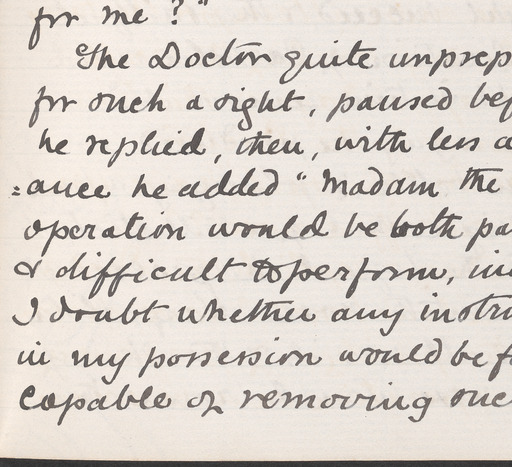 for me?"
The Doctor quite unprep
for such a sight, paused bef
he replied, then, with less a
=ance he added "Madam the
operation would be both pa
& difficult to perform, in
I doubt whether any instru
in my possession would be f
capable of removing suc